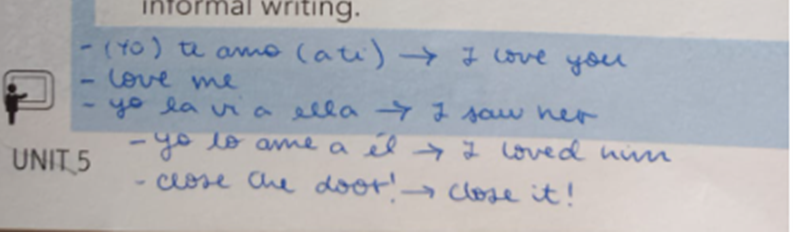 informal writing.
- (Yo) te amo (a ti) → I love you
- love me
- yo la vi a ella → I saw her
- yo lo ame a él → I loved him
UNIT 5
- close the door! → close it!